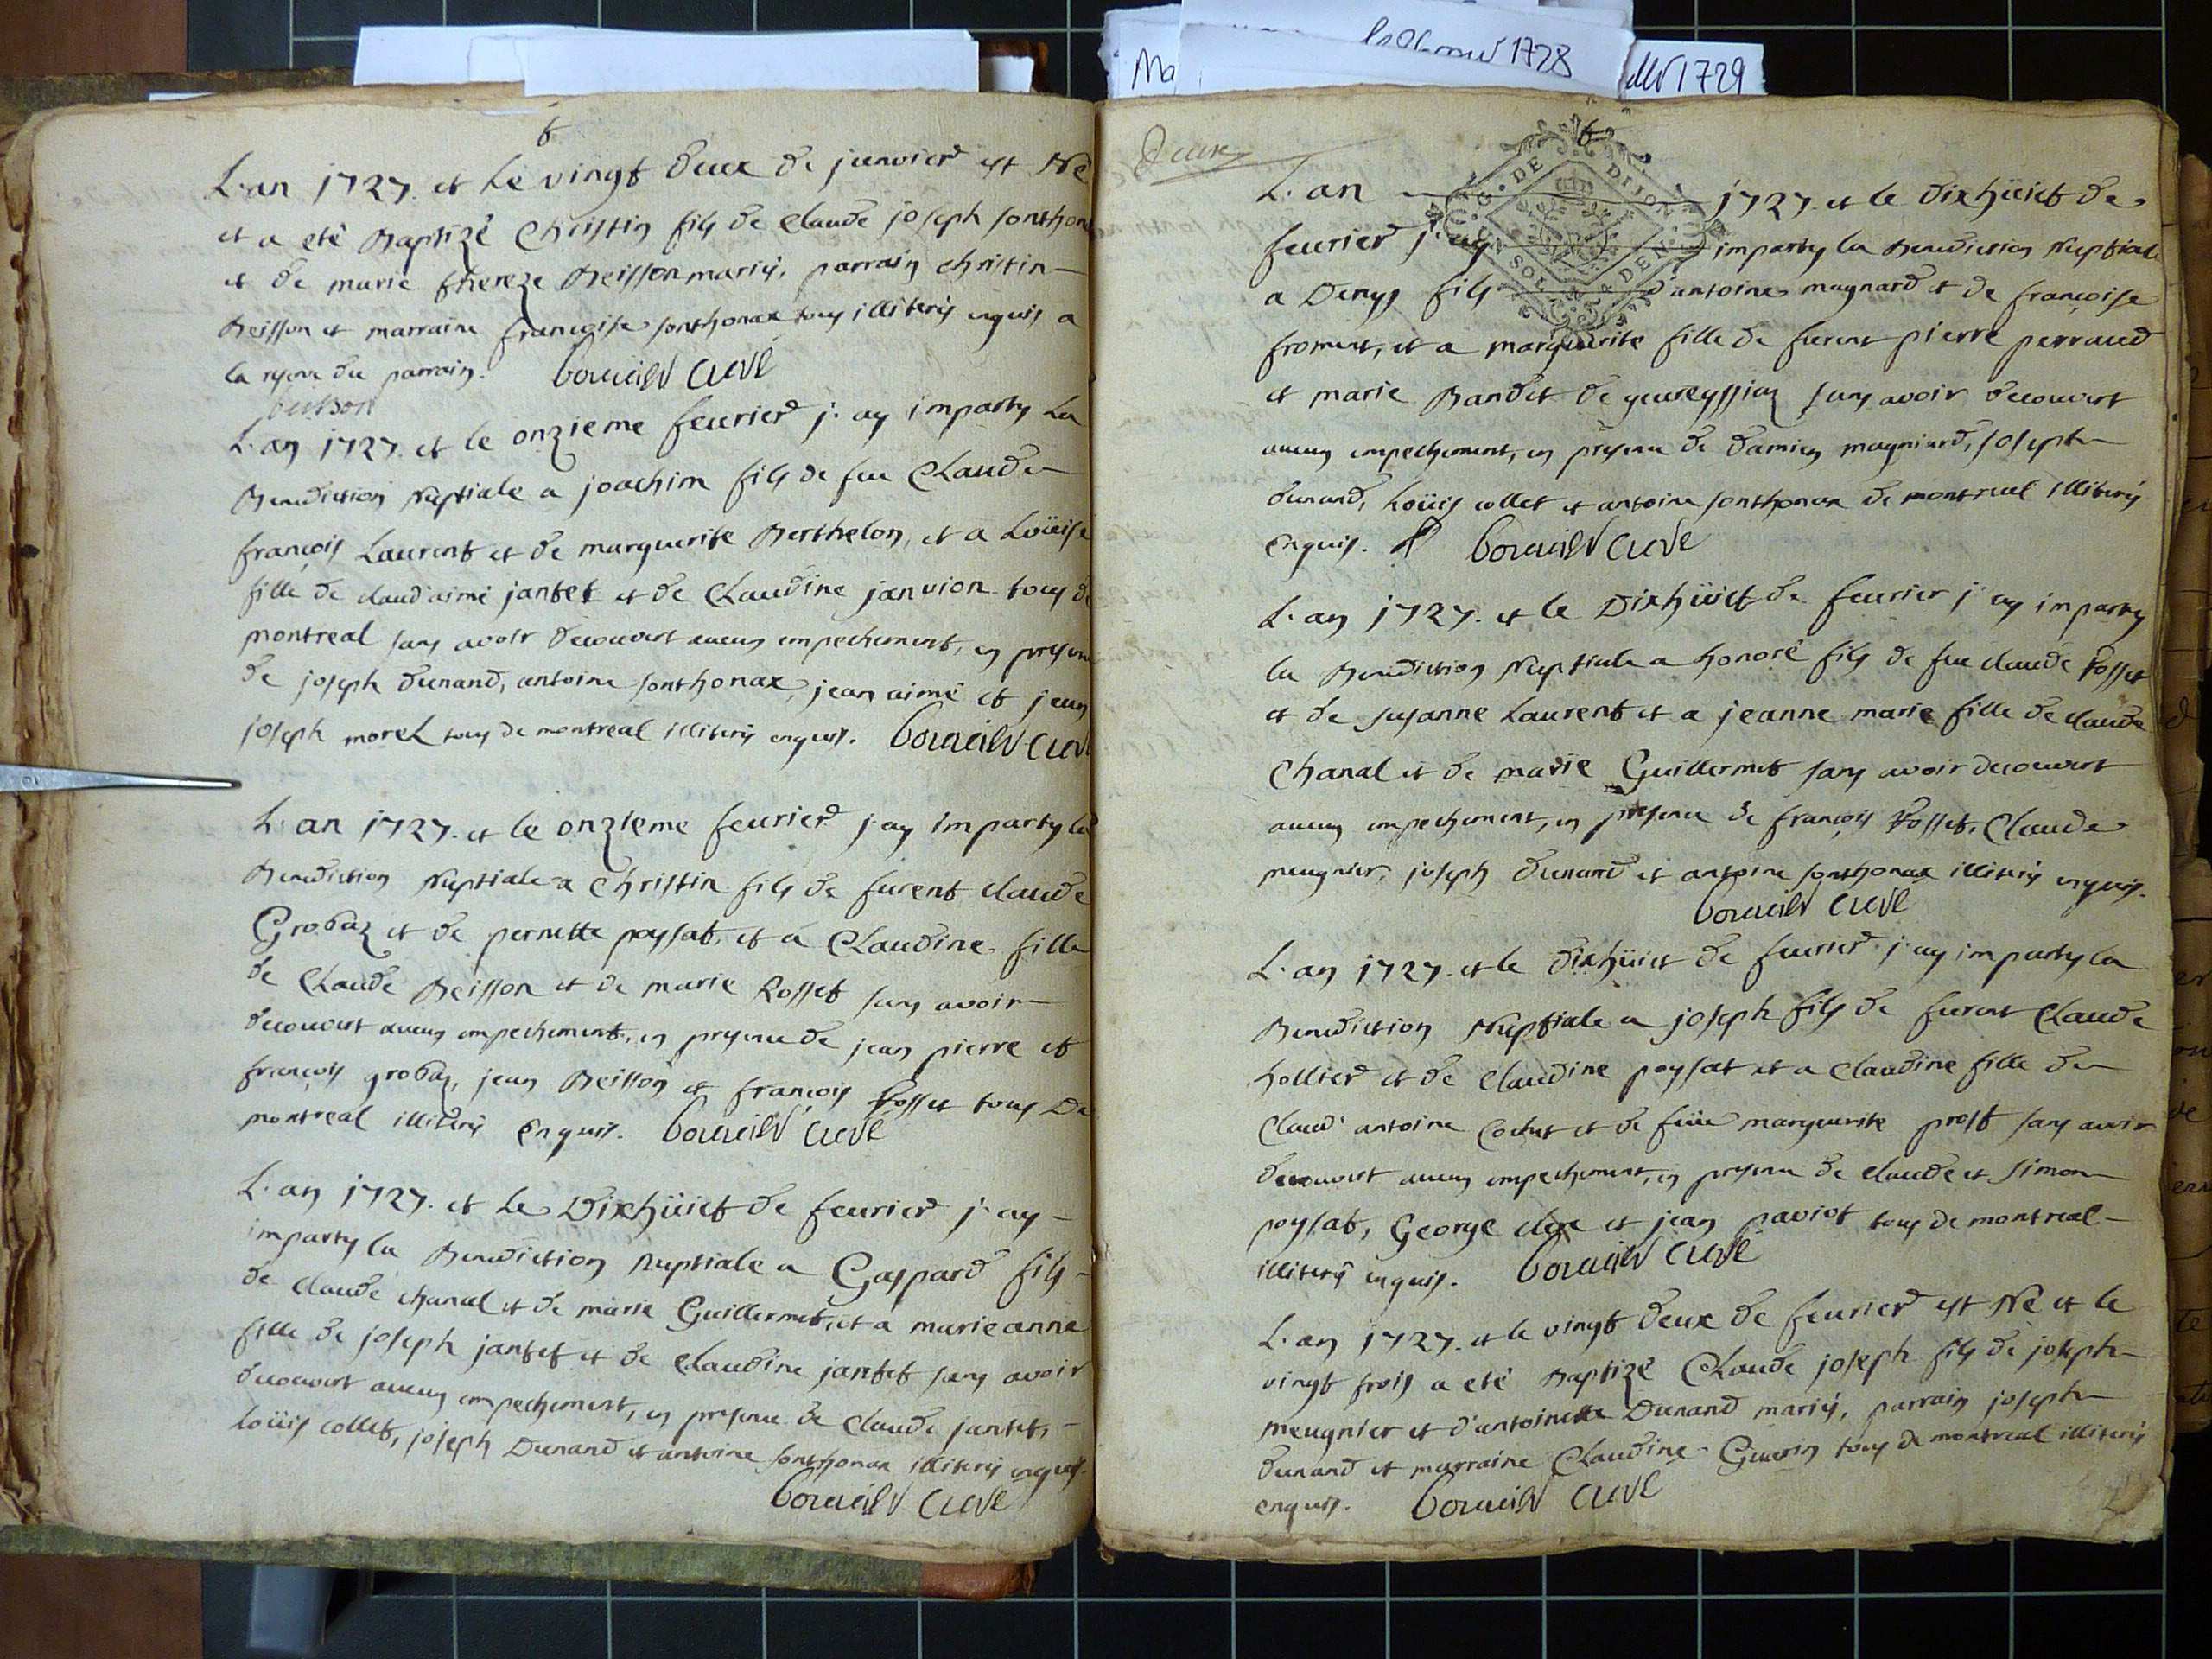 1728
Ma
1729
6
L'an 1727. et le vingt deux de janvier est Né
et a eté Baptizé Christin fils de Claude joseph sonthon
et de marie thereze Beisson mariés, parrain christin
Beisson et marraine françoise sonthonax tous illiterés enquis a
la reserve du parrain. curé
buisson
L'an 1727. et le onzieme feurier j'ay imparty La
Benediction Nuptiale a joachim fils de feu Claude
françois Laurent et de marguerite Berthelon, et a Loüise
fille de claud'aimé jantet et de Claudine janvion tous de
montreal sans avoir decouvert aucun empechement, en presen
de joseph dunand, antoine sonthonax, jean aimé et jean
joseph morel tous de montreal illiterés enquis. curé
L'an 1727. et le onzieme feurier j'ay imparty la
Benediction Nuptiale a Christin fils de furent claude
Grobaz et de pernette poysat, et a Claudine fille
de Claude Beisson et de marie Rosset sans avoir
decouvert aucun empechement, en presence de jean pierre et
françois grobaz, jean Beisson et françois Rosset tous De
montreal illiterés Enquis. curé
L'an 1727. et Le Dixhüict de feurier j'ay
imparty la Benediction Nuptiale a Gaspard fils
de claude chanal et de marie Guillermet, et a marie anne
fille de joseph jantet et de Claudine jantet sans avoir
decouvert aucun empechement, en presence de Claude jantet,
loüis collet, joseph Dunand et antoine sonthonax illiterés enquis.
curé
6
G. DE DIJON
UN SOL
L'an 1727. et le Dixhüict de
feurier j'ay imparty la Benediction Nuptiale
a Denys fils d'antoine magnard et de françoise
froment, et a marguerite fille de furent pierre perraud
et marie Bandet de geureyssiaz sans avoir decouvert
aucun empechement, en presence de damien magniard, joseph
dunand, Loüis collet et antoine sonthonax de montreal illiterés
Enquis. curé
L'an 1727. et le Dixhüict de feurier j'ay imparty
la Benediction Nuptiale a honoré fils de feu claude Rosset
et de susanne Laurent et a jeanne marie fille de claude
Chanal et de marie Guillermet sans avoir decouvert
aucun empechement, en presence de françois Rosset, Claude
meugnier, joseph dunand et antoine sonthonax illiterés enquis.
curé
L'an 1727. et le dixhüict de feurier j'ay imparty la
Benediction Nuptiale a joseph fils de furent Claude
hollier et de Claudine poysat et a Claudine fille de
Claud'antoine Cochet et de feüe marguerite prost sans avoir
decouvert aucun empechement, en presence de claude et simon
poysat, George clerc et jean paviot tous de montreal
illiterés enquis. curé
L'an 1727. et le vingt deux de feurier est Né et le
vingt trois a eté Baptizé Claude joseph fils de joseph
meugnier et d'antoinette Dunand mariés, parrain joseph
dunand et marraine Claudine Guerin tous de montreal illiterés
enquis. curé